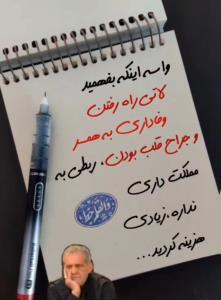 واسه اینکه بفهمید
لاتی راه رفتن
وفاداری به همسر
و جراح قلب بودن، ربطی به
مملکت داری
نداره، زیادی
هزینه کردید...